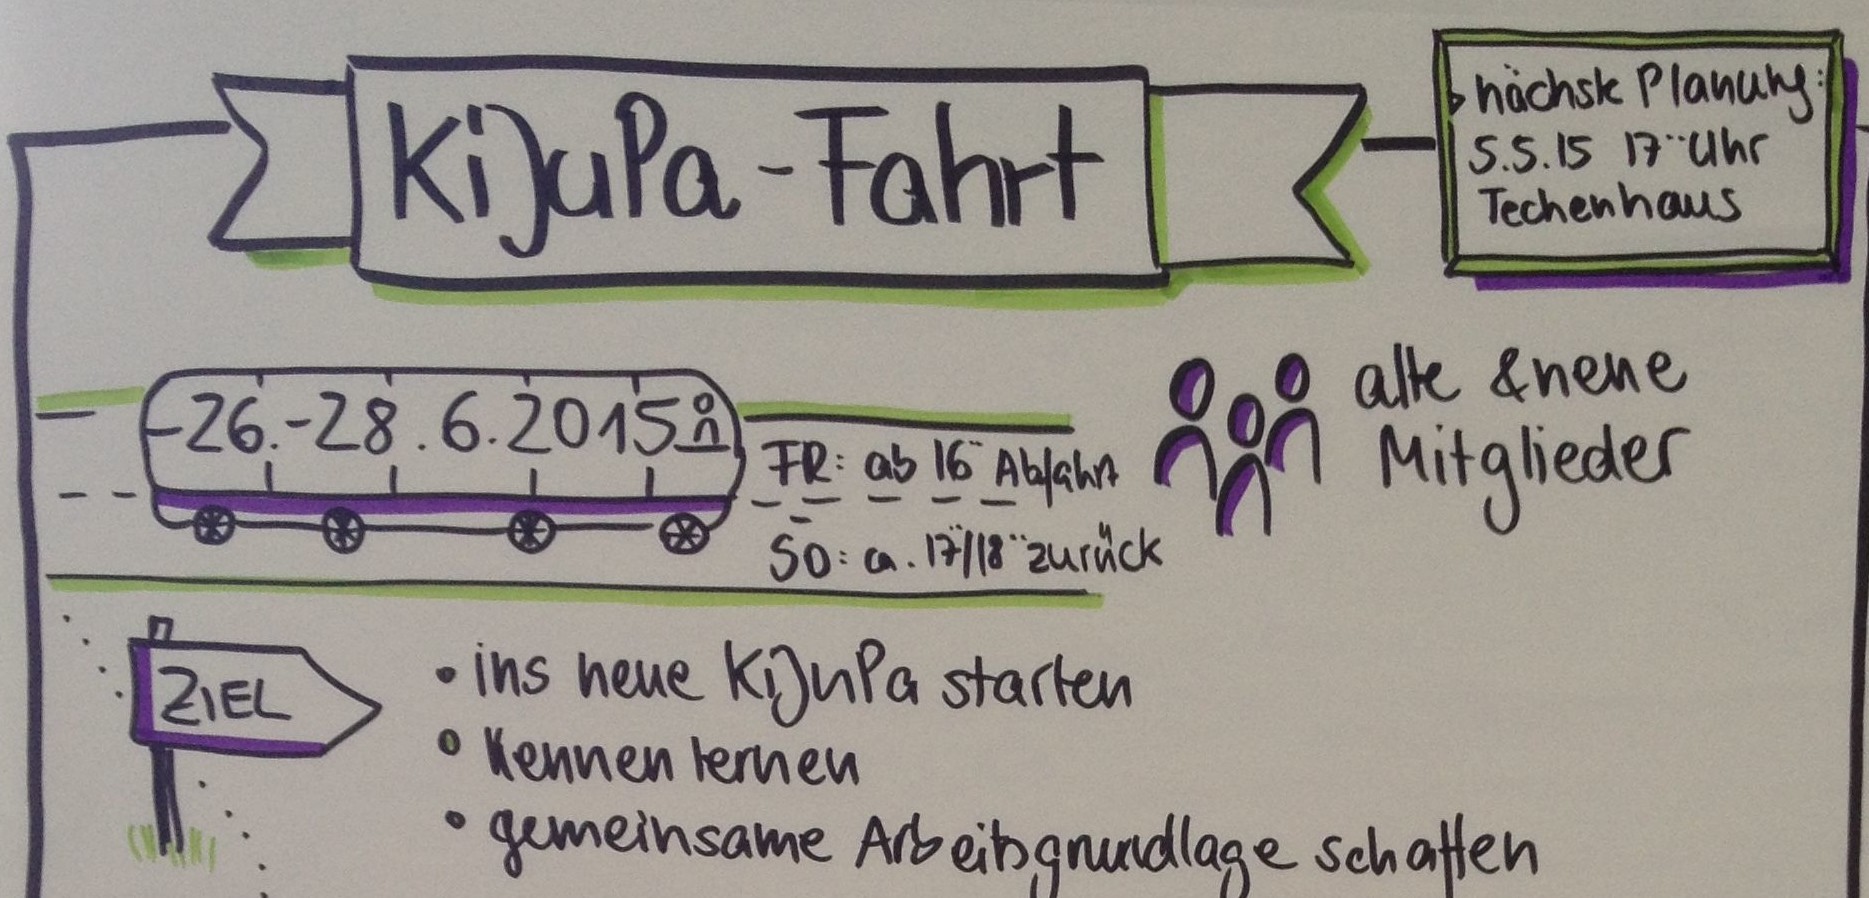 KiJuPa-Fahrt
nächste Planung:
5.5.15 17⁰⁰ Uhr
Techenhaus
26.-28.6.2015
FR: ab 16⁰⁰ Abfahrt
SO: ca. 17⁰⁰/18⁰⁰ zurück
alte & neue
Mitglieder
ZIEL
• ins neue KiJuPa starten
• Kennen lernen
• gemeinsame Arbeitsgrundlage schaffen